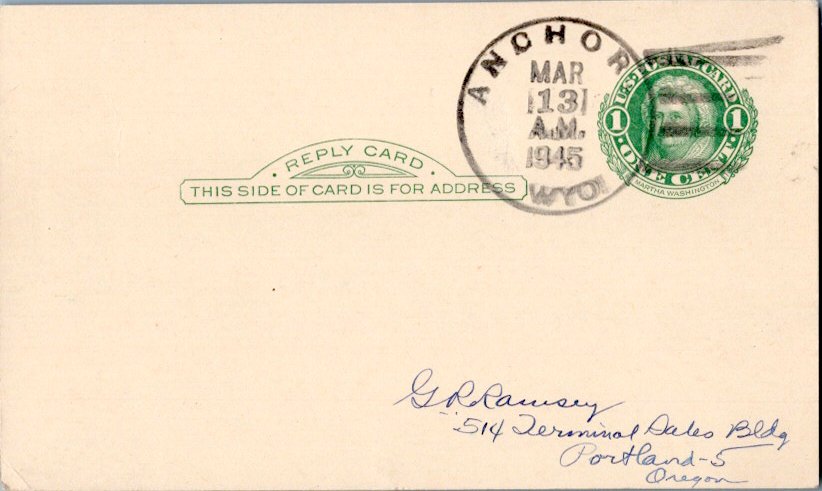 ANCHOR
MAR
13
A.M.
1945
WYO
U.S. POSTAL CARD
1 1
ONE CENT
MARTHA WASHINGTON
· REPLY CARD ·
THIS SIDE OF CARD IS FOR ADDRESS
G R Ramsey
514 Terminal Sales Bldg
Portland-5
Oregon